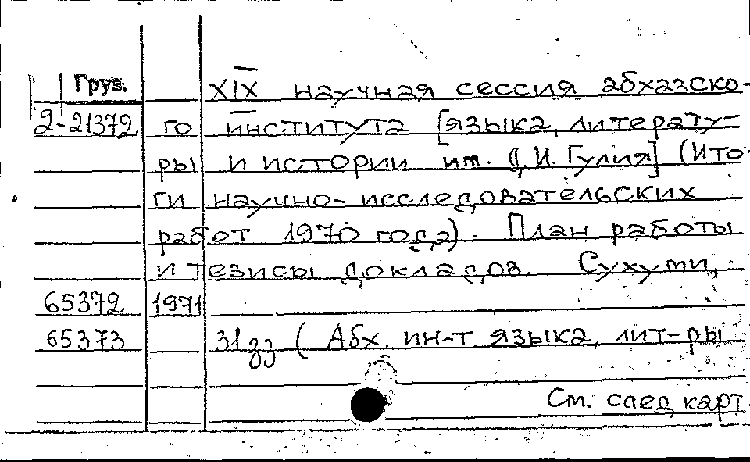 Груз. XIX научная сессия абхазско-
2-21372 го института [языка, литерату-
ры и истории им. Д.И. Гулия] (Ито-
ги научно-исследовательских
работ 1970 года). План работы
и тезисы докладов. Сухуми,
65372 1971
65373 31 გვ (Абх. ин-т языка, лит-ры
См. след карт